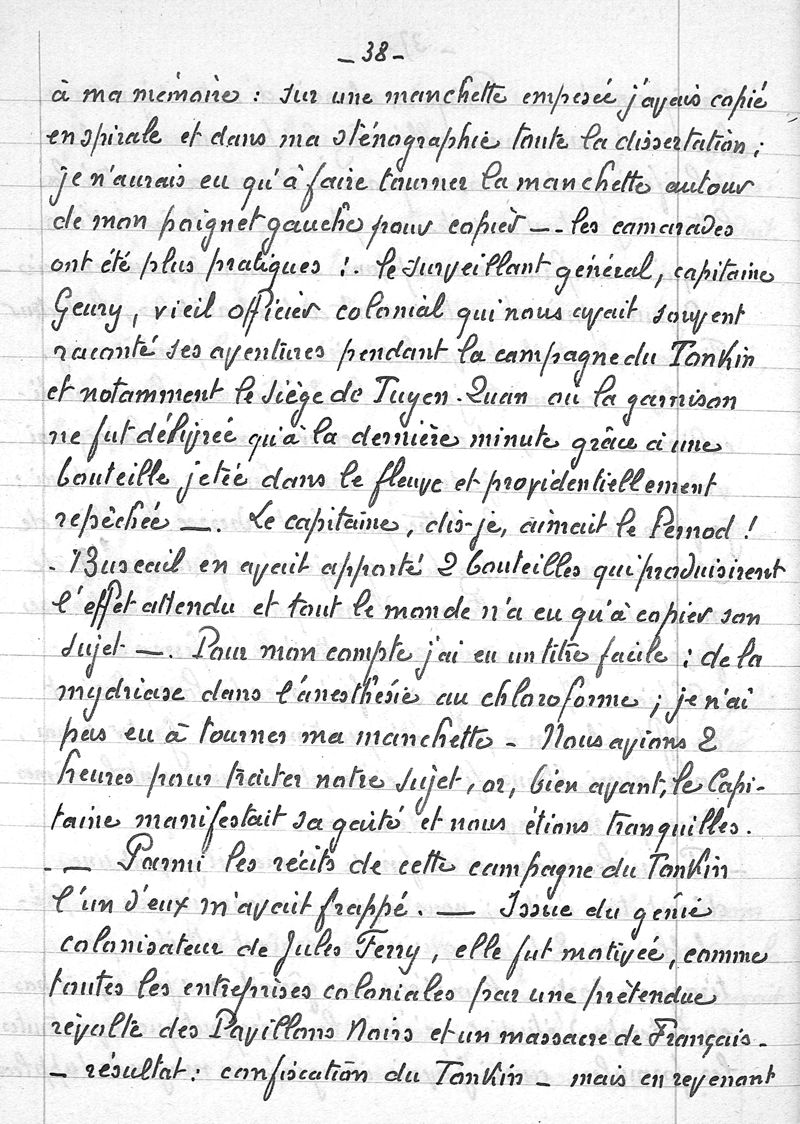 - 38 -
à ma mémoire : sur une manchette empesée j'avais copié
en spirale et dans ma sténographie toute la dissertation ;
je n'aurais eu qu'à faire tourner la manchette autour
de mon poignet gauche pour copier —. les camarades
ont été plus pratiques !. le surveillant général, capitaine
Geury, vieil officier colonial qui nous avait souvent
raconté ses aventures pendant la campagne du Tonkin
et notamment le siège de Tuyen-Quan où la garnison
ne fut délivrée qu'à la dernière minute grâce à une
bouteille jetée dans le fleuve et providentiellement
repêchée —. Le capitaine, dis-je, aimait le Pernod !
- Buseail en avait apporté 2 bouteilles qui produisirent
l'effet attendu et tout le monde n'a eu qu'à copier son
sujet —. Pour mon compte j'ai eu un titre facile : de la
mydriase dans l'anesthésie au chloroforme ; je n'ai
pas eu à tourner ma manchette - Nous avions 2
heures pour traiter notre sujet, or, bien avant, le Capi-
taine manifestait sa gaité et nous étions tranquilles.
- — Parmi les récits de cette campagne du Tonkin
l'un d'eux m'avait frappé. — Issue du génie
colonisateur de Jules Ferry, elle fut motivée, comme
toutes les entreprises coloniales par une prétendue
révolte des Pavillons Noirs et un massacre de Français -
- résultat : confiscation du Tonkin - mais en revenant